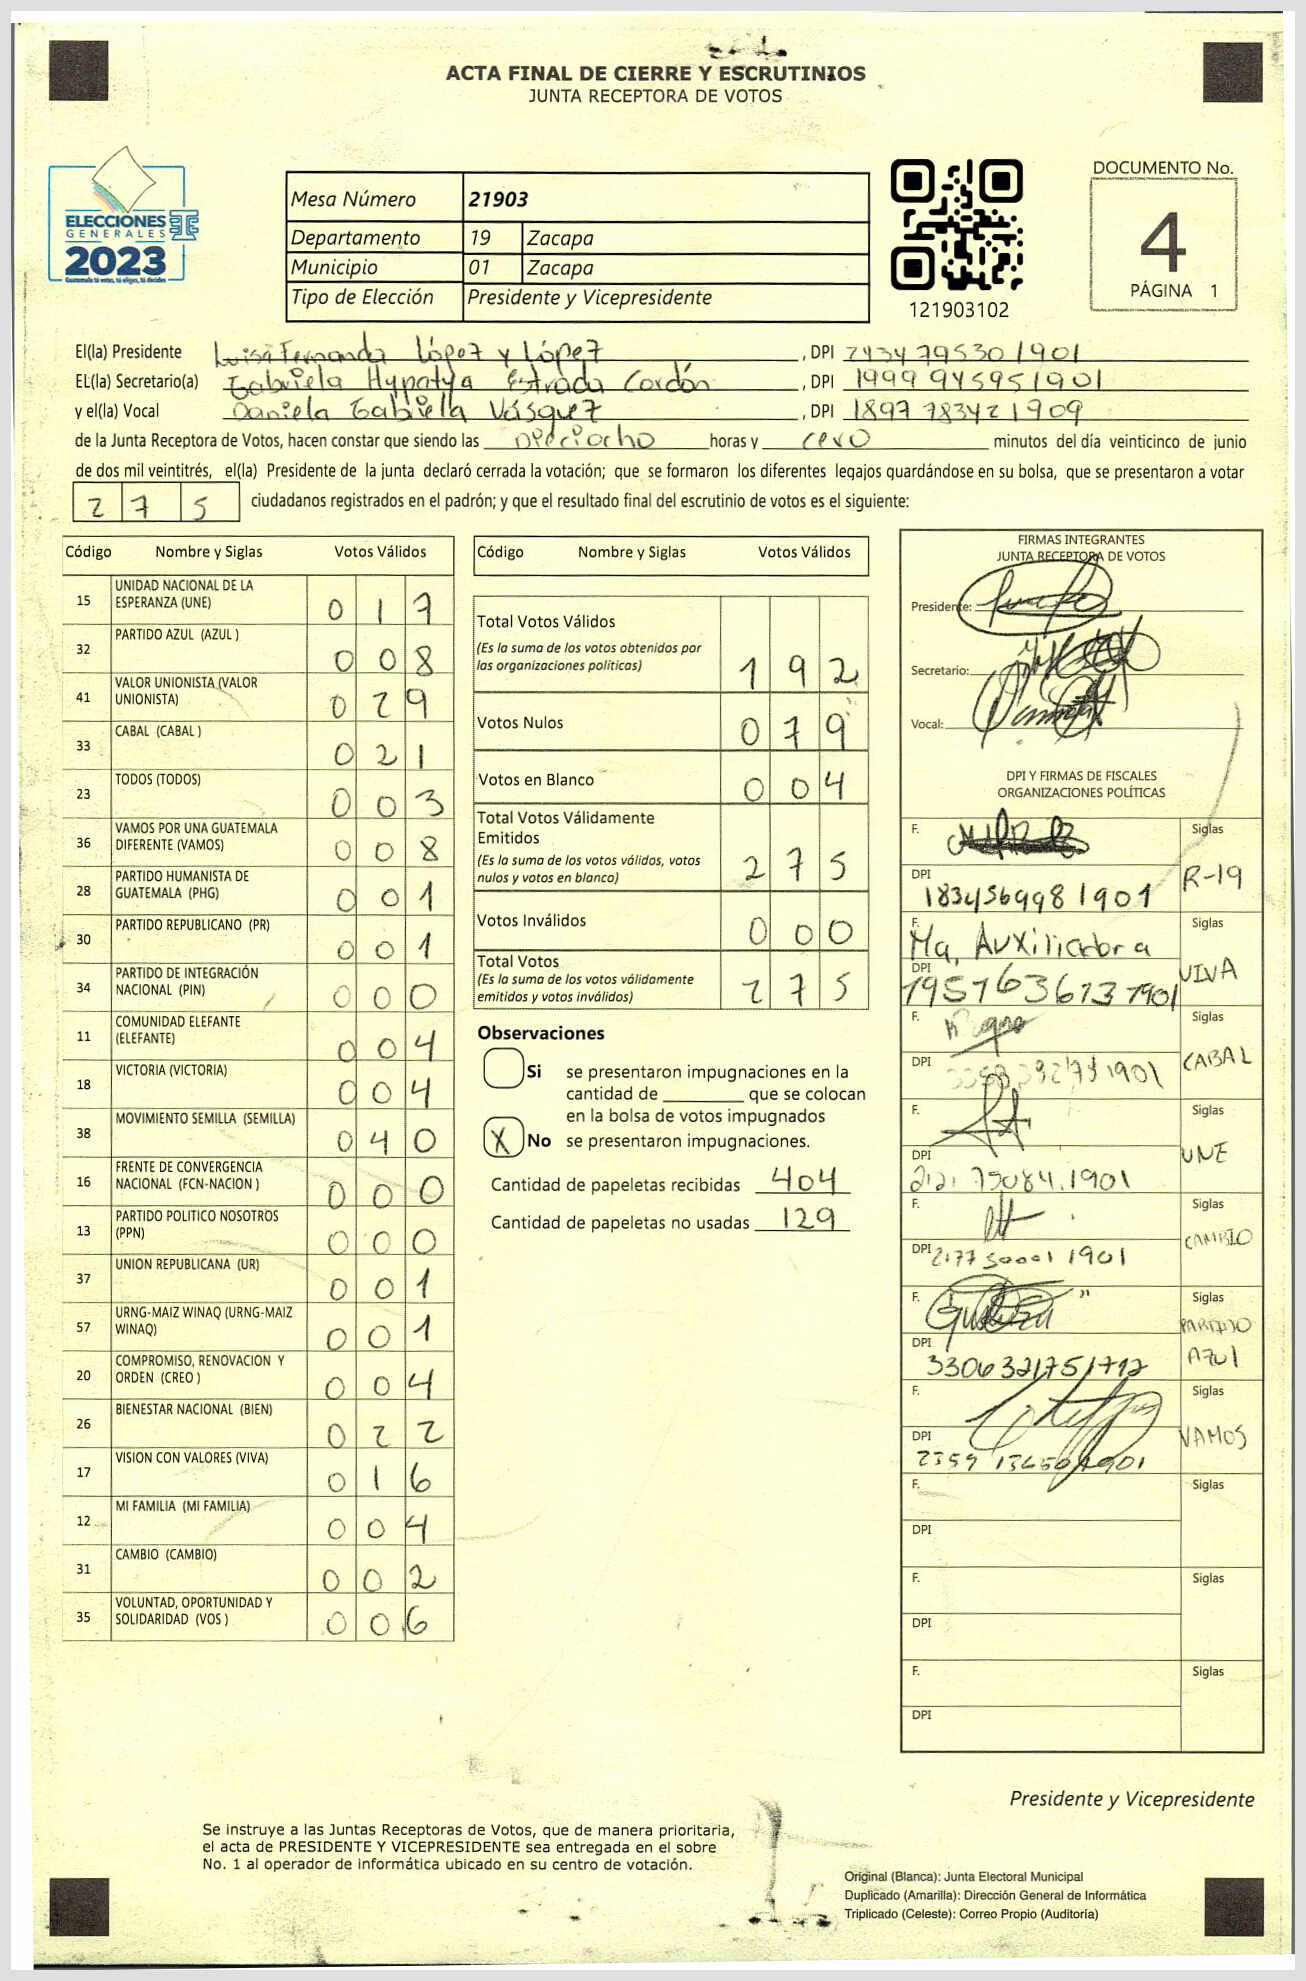 ACTA FINAL DE CIERRE Y ESCRUTINIOS
JUNTA RECEPTORA DE VOTOS
ELECCIONES
GENERALES
2023
Guatemala tú votas, tú eliges, tú decides
Mesa Número 21903
Departamento 19 Zacapa
Municipio 01 Zacapa
Tipo de Elección Presidente y Vicepresidente
121903102
DOCUMENTO No.
4
PÁGINA 1
El(la) Presidente Luisa Fernanda López y López , DPI 2434795301901
EL(la) Secretario(a) Gabriela Hypatya Estrada Cordón , DPI 1999 945951901
y el(la) Vocal Daniela Gabriela Vásquez , DPI 1897 783421909
de la Junta Receptora de Votos, hacen constar que siendo las Dieciocho horas y cero minutos del día veinticinco de junio
de dos mil veintitrés, el(la) Presidente de la junta declaró cerrada la votación; que se formaron los diferentes legajos quardándose en su bolsa, que se presentaron a votar
275 ciudadanos registrados en el padrón; y que el resultado final del escrutinio de votos es el siguiente:
Código Nombre y Siglas Votos Válidos
15 UNIDAD NACIONAL DE LA ESPERANZA (UNE) 017
32 PARTIDO AZUL (AZUL ) 008
41 VALOR UNIONISTA (VALOR UNIONISTA) 029
33 CABAL (CABAL ) 021
23 TODOS (TODOS) 003
36 VAMOS POR UNA GUATEMALA DIFERENTE (VAMOS) 008
28 PARTIDO HUMANISTA DE GUATEMALA (PHG) 001
30 PARTIDO REPUBLICANO (PR) 001
34 PARTIDO DE INTEGRACIÓN NACIONAL (PIN) 000
11 COMUNIDAD ELEFANTE (ELEFANTE) 004
18 VICTORIA (VICTORIA) 004
38 MOVIMIENTO SEMILLA (SEMILLA) 040
16 FRENTE DE CONVERGENCIA NACIONAL (FCN-NACION ) 000
13 PARTIDO POLITICO NOSOTROS (PPN) 000
37 UNION REPUBLICANA (UR) 001
57 URNG-MAIZ WINAQ (URNG-MAIZ WINAQ) 001
20 COMPROMISO, RENOVACION Y ORDEN (CREO ) 004
26 BIENESTAR NACIONAL (BIEN) 022
17 VISION CON VALORES (VIVA) 016
12 MI FAMILIA (MI FAMILIA) 004
31 CAMBIO (CAMBIO) 002
35 VOLUNTAD, OPORTUNIDAD Y SOLIDARIDAD (VOS ) 006
Código Nombre y Siglas Votos Válidos
Total Votos Válidos
(Es la suma de los votos obtenidos por
las organizaciones políticas) 192
Votos Nulos 079
Votos en Blanco 004
Total Votos Válidamente
Emitidos
(Es la suma de los votos válidos, votos
nulos y votos en blanco) 275
Votos Inválidos 000
Total Votos
(Es la suma de los votos válidamente
emitidos y votos inválidos) 275
Observaciones
Si se presentaron impugnaciones en la
cantidad de ________ que se colocan
en la bolsa de votos impugnados
X No se presentaron impugnaciones.
Cantidad de papeletas recibidas 404
Cantidad de papeletas no usadas 129
FIRMAS INTEGRANTES
JUNTA RECEPTORA DE VOTOS
Presidente:
Secretario:
Vocal:
DPI Y FIRMAS DE FISCALES
ORGANIZACIONES POLÍTICAS
F. Siglas
DPI 1834569981901 R-19
F. Ma, Auxiliadora Siglas
DPI VIVA
F. Siglas
DPI CABAL
F. Siglas
DPI UNE
F. Siglas
DPI CAMBIO
F. Siglas
DPI PARTIDO AZUL
F. Siglas
DPI VAMOS
F. Siglas
DPI
F. Siglas
DPI
F. Siglas
DPI
Presidente y Vicepresidente
Se instruye a las Juntas Receptoras de Votos, que de manera prioritaria,
el acta de PRESIDENTE Y VICEPRESIDENTE sea entregada en el sobre
No. 1 al operador de informática ubicado en su centro de votación.
Original (Blanca): Junta Electoral Municipal
Duplicado (Amarilla): Dirección General de Informática
Triplicado (Celeste): Correo Propio (Auditoría)